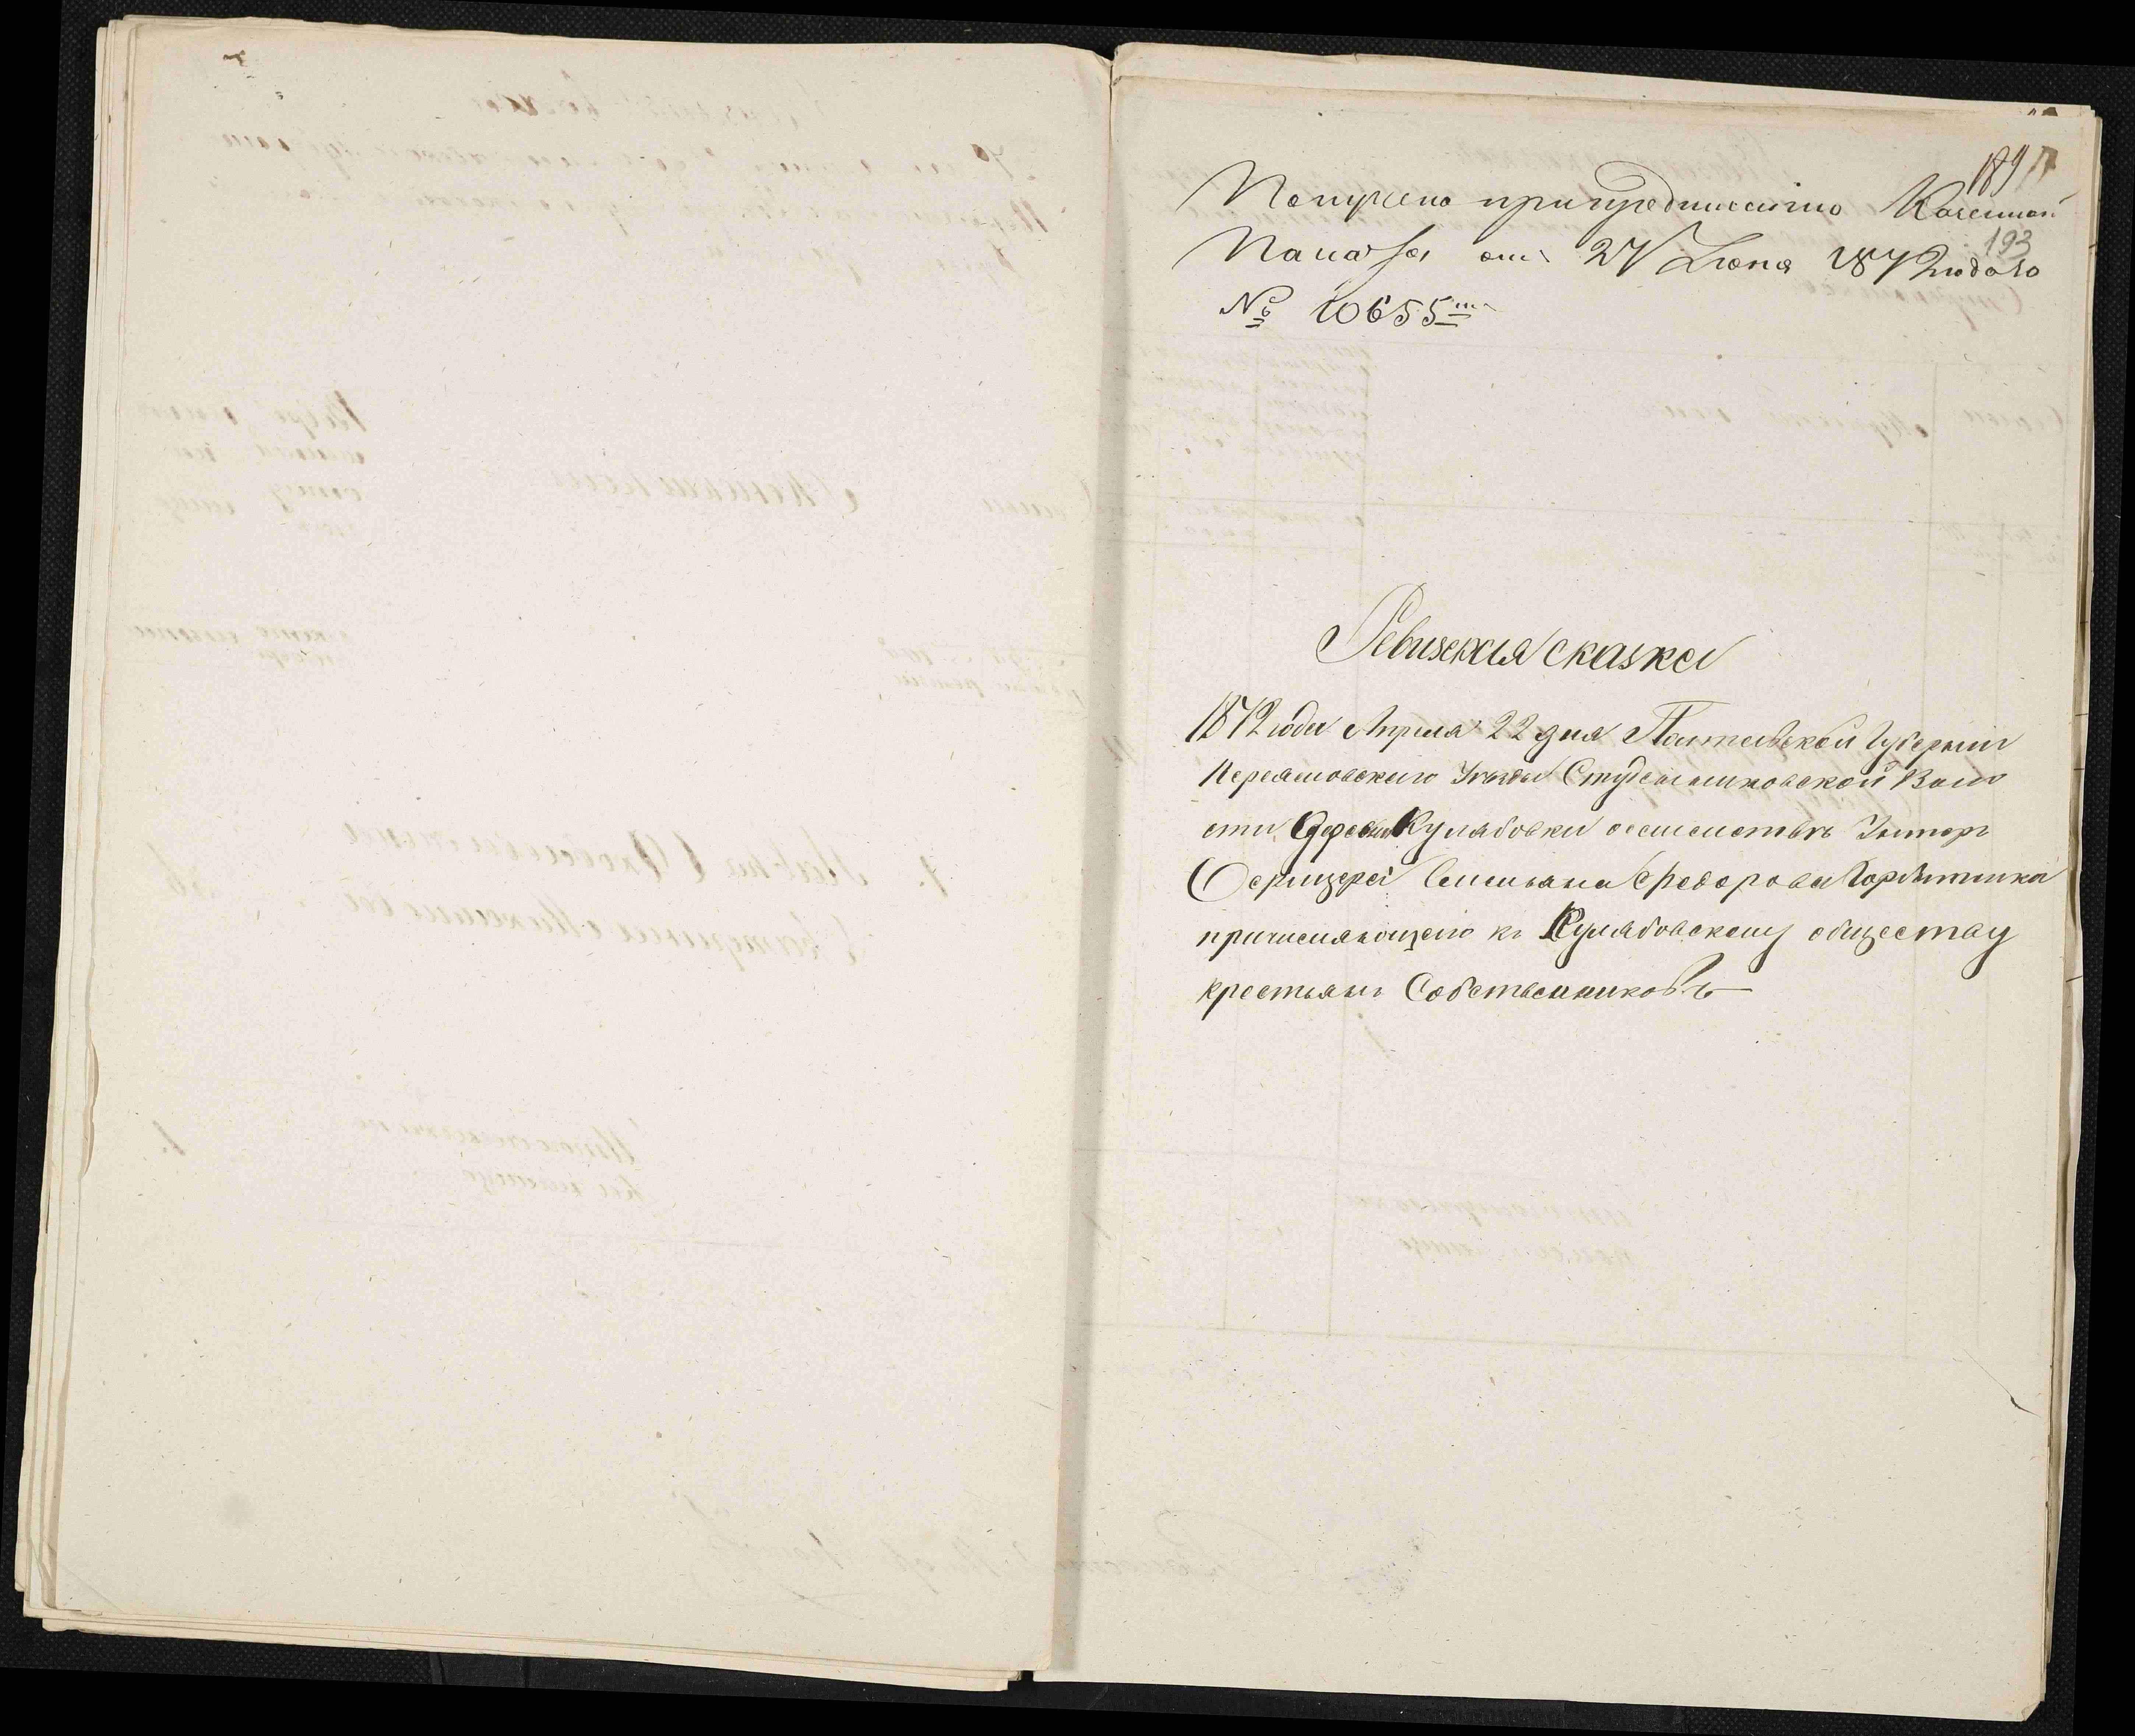 189
Получено при предписанiи Казенной
Палаты отъ 27 Iюня 1872 года за
193
№ 10655мъ
Ревизская сказка
1872 года Апреля 22 дня Полтавской Губернiи
Переяславскаго Уезда Студениковской Воло
сти Деревни Кулябовки
Офицера Емельяна Федорова Горбатенка
причисляющего къ Кулябовскому обществу
крестьянъ Собственниковъ